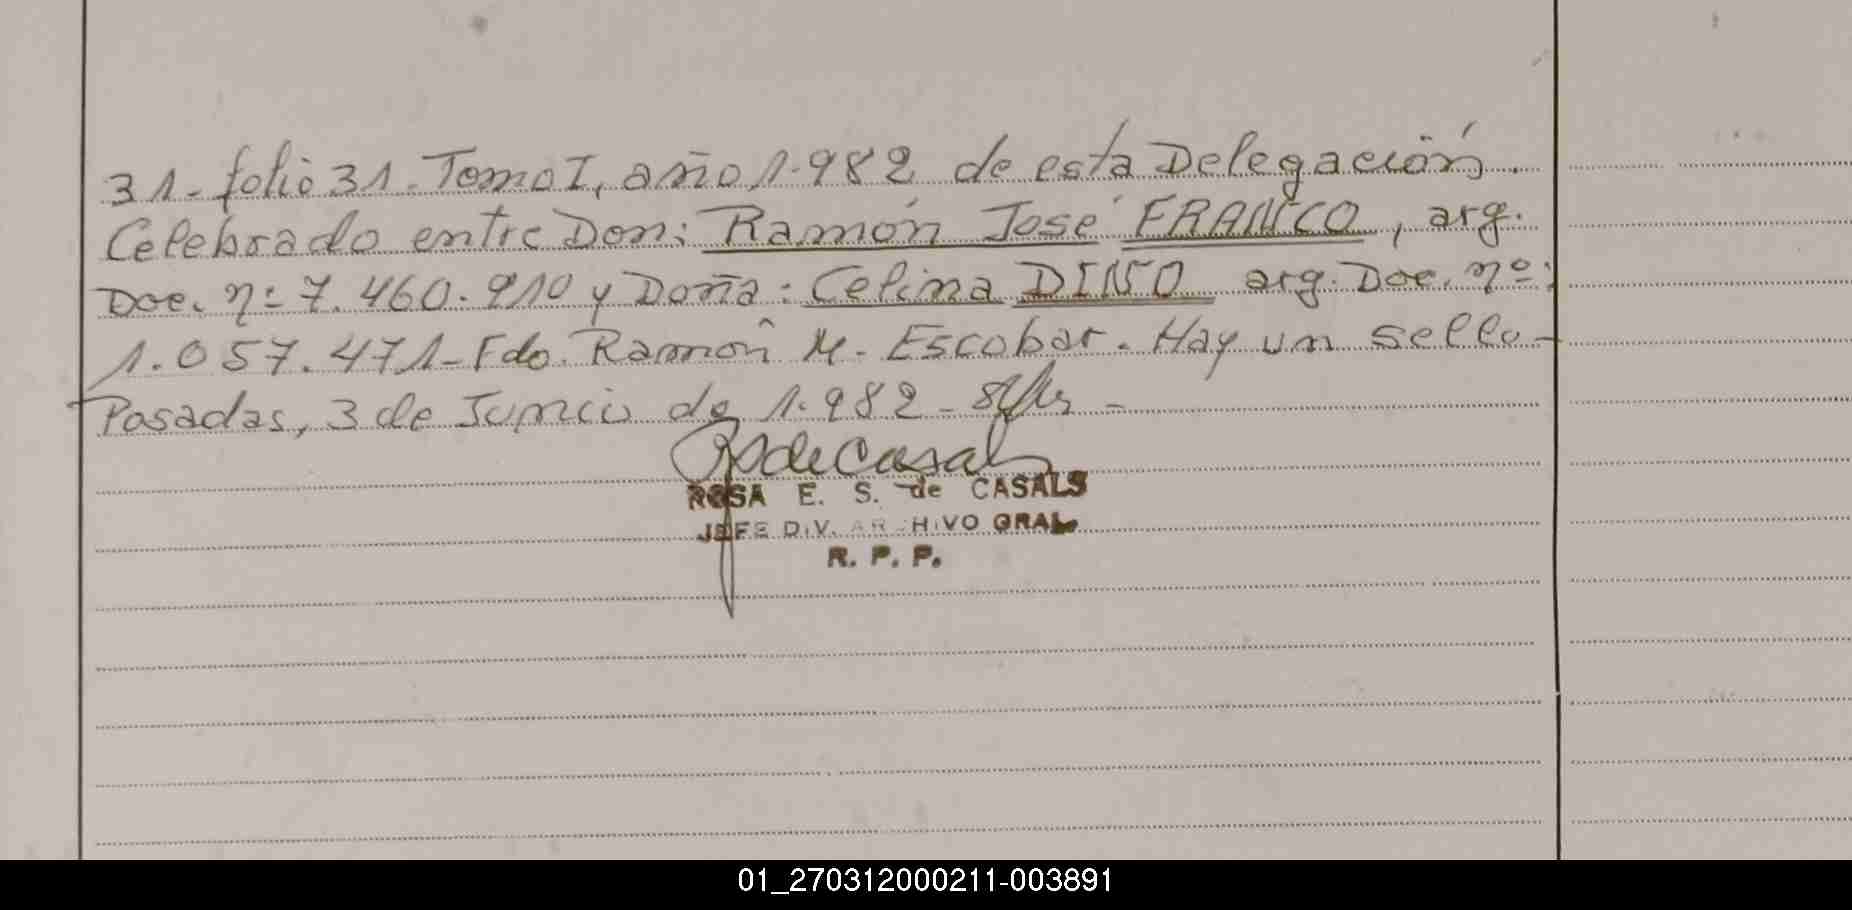 31- folio 31. Tomo I, año 1.982 de esta Delegación.
Celebrado entre Don: Ramón José FRANCO, arg.
Doc. nº 7.460.910 y Doña: Celina DINO arg. Doc. nº:
1.057.471- Fdo. Ramón M. Escobar. Hay un sello-
Posadas, 3 de Junio de 1.982 -
RSdeCasals
ROSA E. S. de CASALS
JEFE DIV. ARCHIVO GRAL
R. P. P.
01_270312000211-003891